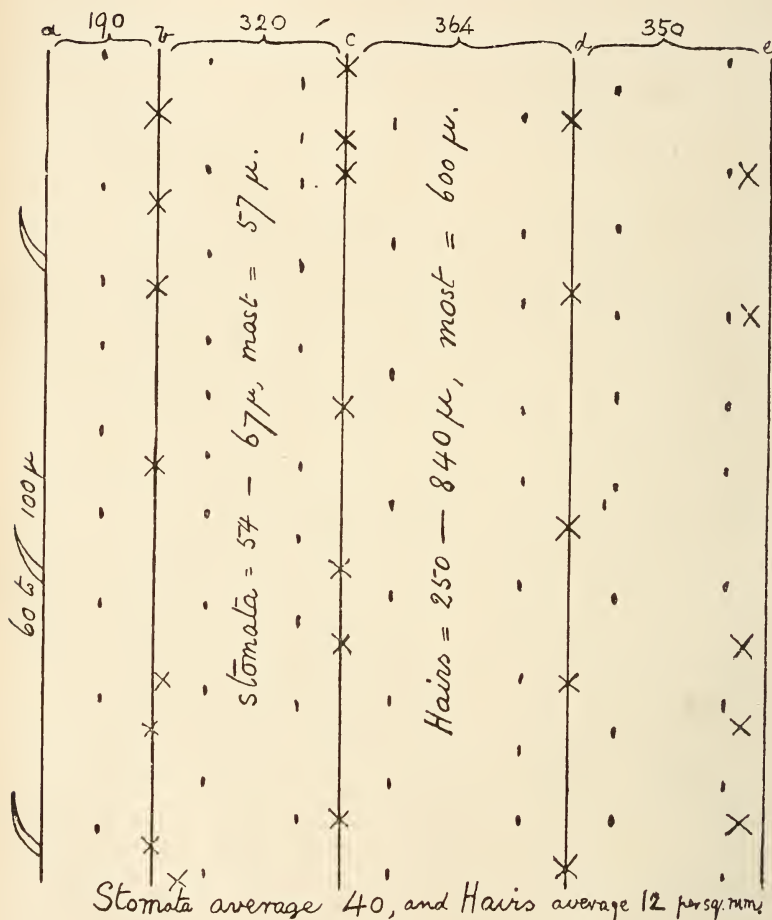 a 190 b 320 c 364 d 350 e
stomata = 54 – 67 µ, most = 57 µ.
Hairs = 250 – 840 µ, most = 600 µ.
60 to 100 µ
Stomata average 40, and Hairs average 12 per sq. mm.